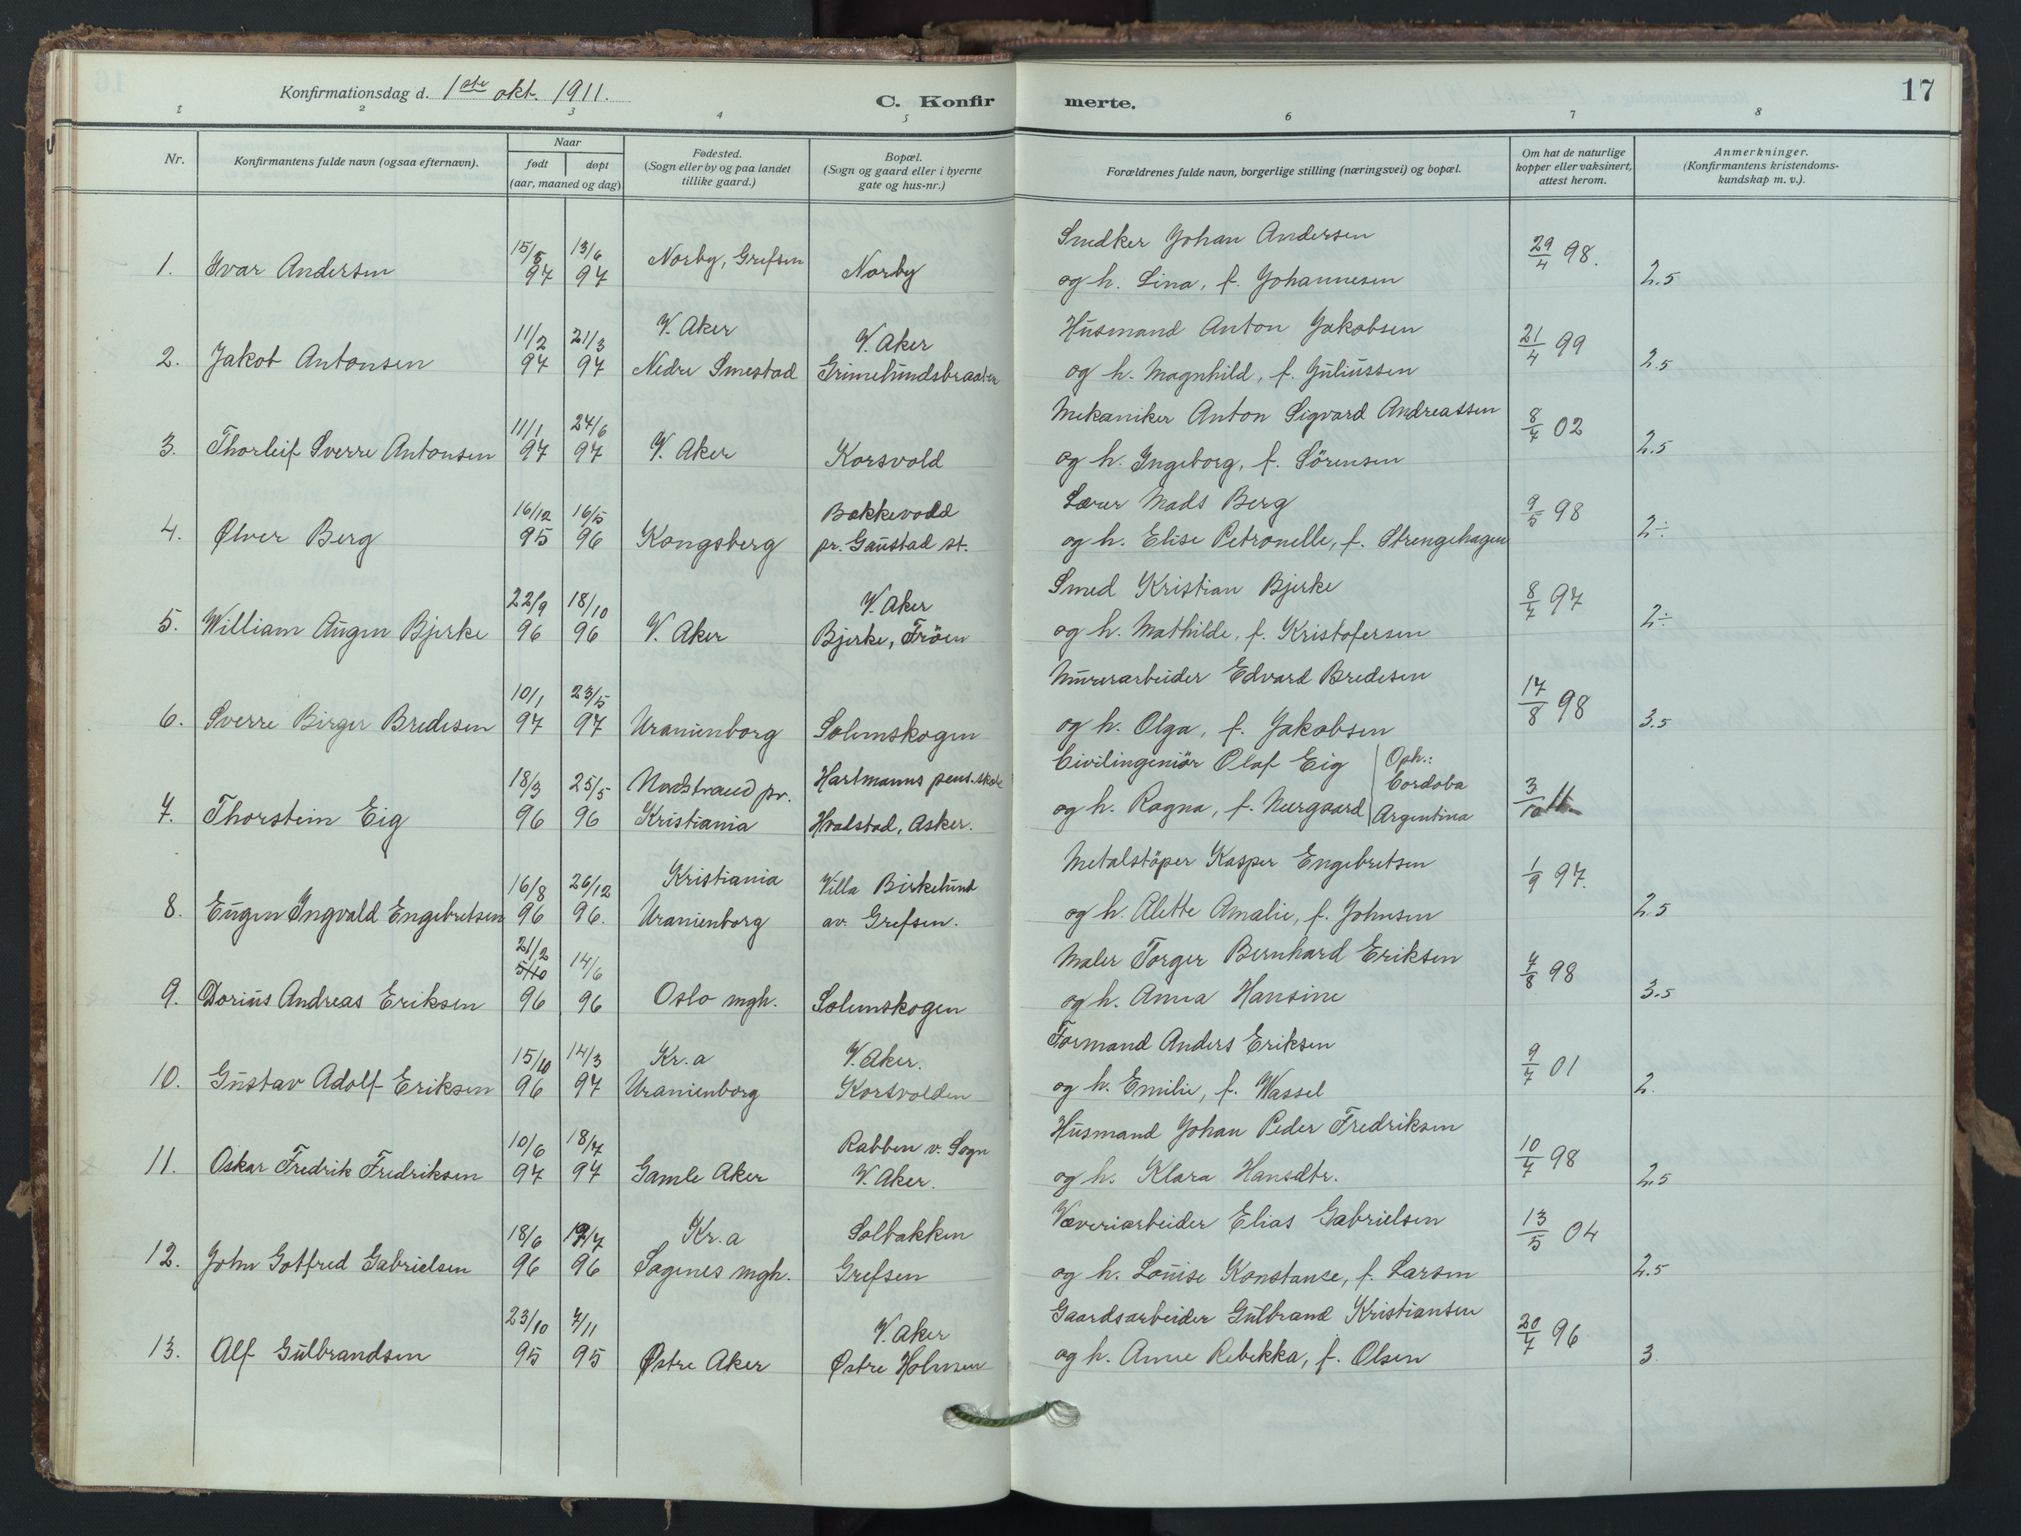 Konfirmationsdag d. 1ste okt. 1911.
C. Konfirmerte.
17
1 2 3 4 5 6 7 8
Nr.
Konfirmantens fulde navn (ogsaa efternavn).
Naar
født
døpt
(aar, maaned og dag)
Fødested.
(Sogn eller by og paa landet
tillike gaard.)
Bopæl.
(Sogn og gaard eller i byerne
gate og hus-nr.)
Forældrenes fulde navn, borgerlige stilling (næringsvei) og bopæl.
Om hat de naturlige
kopper eller vaksinert,
attest herom.
Anmerkninger.
(Konfirmantens kristendoms-
kundskap m. v.).
1. Ivar Andersen 15/5 97 13/6 97 Norby, Grefsen Norby
Smedker Johan Andersen
og h. Lina, f. Johannesen 29/4 98. 2.5
2. Jakob Antonsen 11/2 97 21/3 97 V. Aker Nedre Smestad V. Aker Grimelundsbraaten
Husmand Anton Jakobsen
og h. Magnhild, f. Juliussen 21/4 99 2.5
3. Thorleif Sverre Antonsen 11/1 97 24/6 97 V. Aker Korsvold
Mekaniker Anton Sigvard Andreassen
og h. Ingeborg, f. Sörensen 8/7 02 2.5
4. Ølver Berg 16/12 95 16/5 96 Kongsberg Bakkevold pr. Gaustad st.
Lærer Mads Berg
og h. Elise Petronelle, f. Strengehagen 9/5 98 2÷
5. William Augen Bjerke 22/9 96 18/10 96 V. Aker V. Aker Bjerke, Fröen
Smed Kristian Bjerke
og h. Mathilde, f. Kristofersen 8/7 97 2÷
6. Sverre Birger Bredesen 10/1 97 23/5 97 Uranienborg Solemskogen
Murerarbeider Edvard Bredesen
og h. Olga, f. Jakobsen 17/8 98 3.5
7. Thorstein Eig 18/3 96 25/5 96 Nordstrand pr. Kristiania Hartmanns pens. skole Hvalstad, Asker.
Civilingeniör Olaf Eig Oph.: Cordoba
og h. Ragna, f. Neergaard Argentina 3/10 11.
8. Eugen Ingvald Engebretsen 16/8 96 26/12 96. Kristiania Uranienborg Villa Birkelund av. Grefsen.
Metalstöper Kasper Engebretsen
og h. Alette Amalie, f. Johnsen 1/9 97. 2.5
9. Dorius Andreas Eriksen 21/2 5/10 96 14/6 96 Oslo mgh. Solemskogen
Maler Torger Bernhard Eriksen
og h. Anna Hansine 7/8 98 3.5
10. Gustav Adolf Eriksen 15/10 96 14/3 97 Kr.a Uranienborg V. Aker. Korsvolden
Formand Anders Eriksen
og h. Emilie, f. Wassel 9/7 01 2.
11. Oskar Fredrik Fredriksen 10/6 97 18/7 97 Gamle Aker Rabben v. Sogn V. Aker.
Husmand Johan Peder Fredriksen
og h. Klara Hansdtr. 10/7 98 2.5
12. John Gotfred Gabrielsen 18/6 96 19/7 96 Kr.a Sagenes mgh. Solbakken Grefsen
Væveriarbeider Elias Gabrielsen
og h. Louise Konstanse, f. Larsen 13/5 04 2.5
13. Alf Gulbrandsen 23/10 95 7/11 95 Østre Aker V. Aker Østre Holmen
Gaardsarbeider Gulbrand Kristiansen
og h. Anne Rebekka, f. Olsen 20/7 96 3